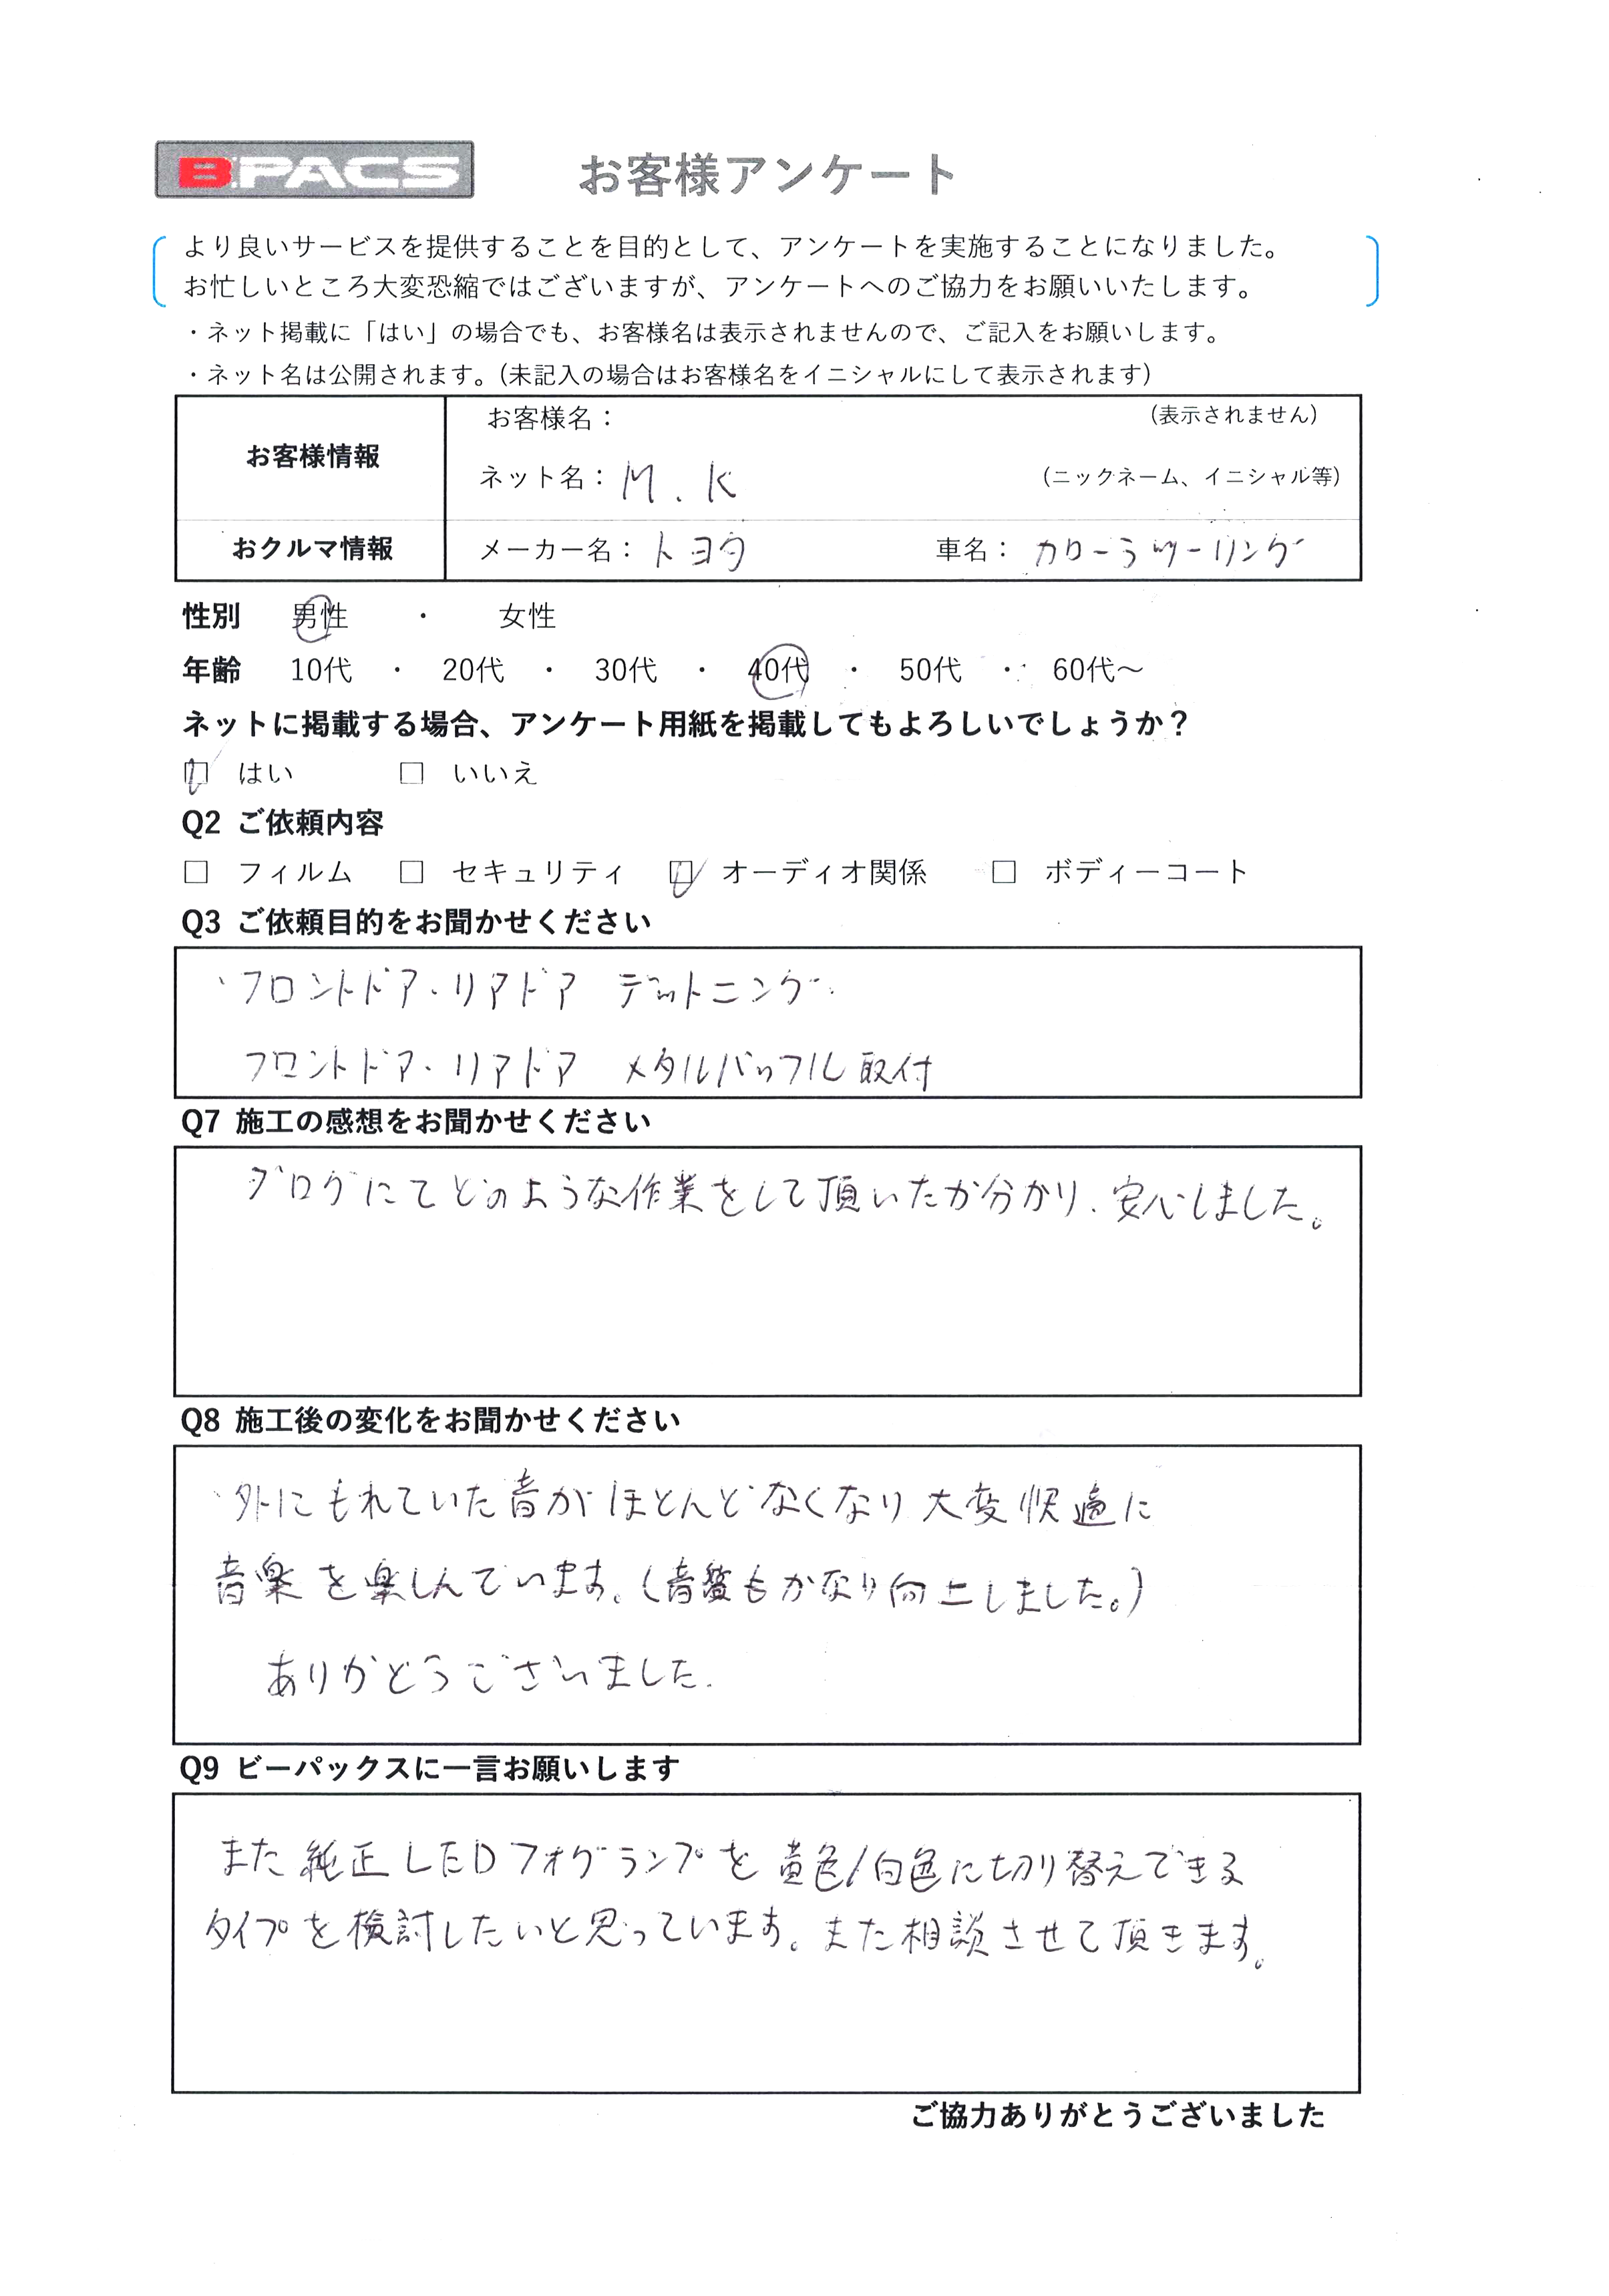 B PACS お客様アンケート
より良いサービスを提供することを目的として、アンケートを実施することになりました。
お忙しいところ大変恐縮ではございますが、アンケートへのご協力をお願いいたします。
・ネット掲載に「はい」の場合でも、お客様名は表示されませんので、ご記入をお願いします。
・ネット名は公開されます。(未記入の場合はお客様名をイニシャルにして表示されます)
お客様情報
お客様名： (表示されません)
ネット名： M.K (ニックネーム、イニシャル等)
おクルマ情報 メーカー名： トヨタ 車名： カローラツーリング
性別 男性 ・ 女性
年齢 10代 ・ 20代 ・ 30代 ・ 40代 ・ 50代 ・ 60代～
ネットに掲載する場合、アンケート用紙を掲載してもよろしいでしょうか？
☑ はい □ いいえ
Q2 ご依頼内容
□ フィルム □ セキュリティ ☑ オーディオ関係 □ ボディーコート
Q3 ご依頼目的をお聞かせください
・フロントドア・リアドア デットニング
フロントドア・リアドア メタルバッフル取付
Q7 施工の感想をお聞かせください
ブログにてどのような作業をして頂いたか分かり、安心しました。
Q8 施工後の変化をお聞かせください
・外にもれていた音がほとんどなくなり大変快適に
音楽を楽しんでいます。(音質もかなり向上しました。)
ありがとうございました。
Q9 ビーパックスに一言お願いします
また純正LEDフォグランプを黄色/白色に切り替えできる
タイプを検討したいと思っています。また相談させて頂きます。
ご協力ありがとうございました